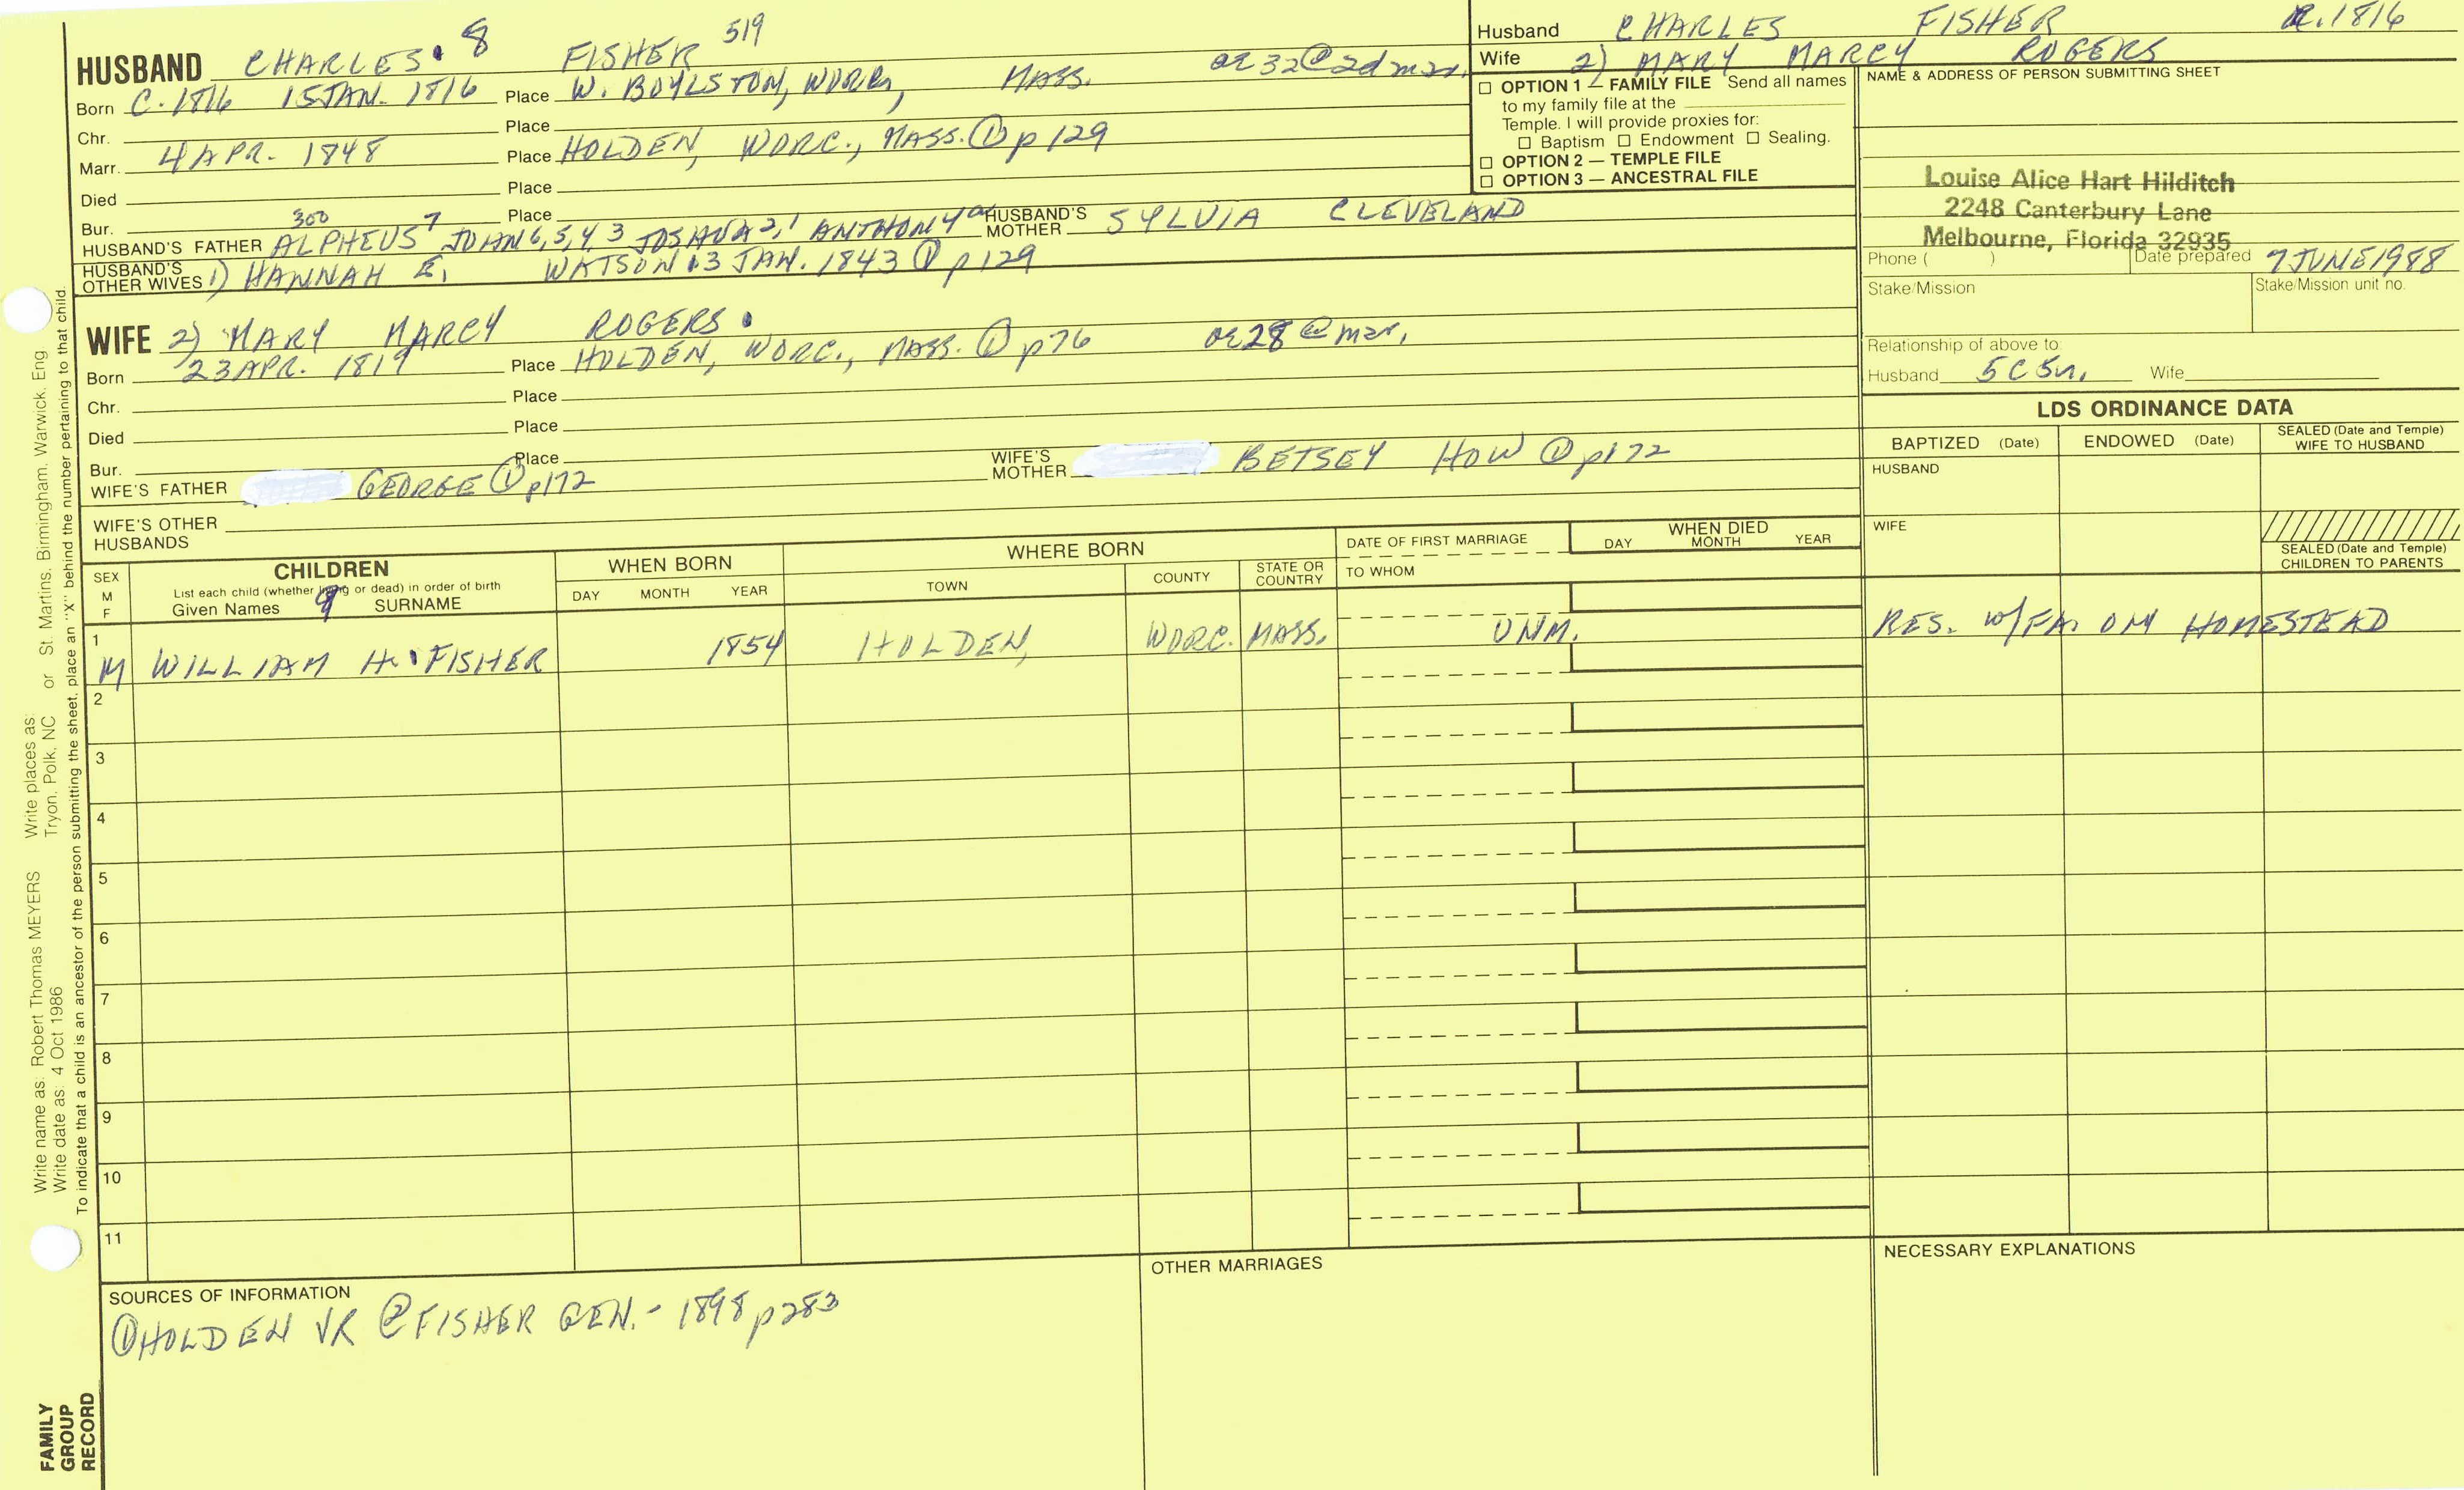 HUSBAND CHARLES 8 FISHER 519
æ 32 @ 2d mar.
Born C. 1816 15 JAN. 1816 Place W. BOYLSTON, WORC., MASS.
Chr. Place
Marr. 4 APR. 1848 Place HOLDEN, WORC., MASS. ① p 129
Died Place
Bur. Place
HUSBAND'S FATHER 300 ALPHEUS 7 JOHN 6, 5, 4, 3 JOSHUA 2, 1 ANTHONY HUSBAND'S MOTHER SYLVIA CLEVELAND
HUSBAND'S OTHER WIVES 1) HANNAH E. WATSON 13 JAN. 1843 ① p 129
WIFE 2) MARY MARCY ROGERS
æ 28 @ mar.
Born 23 APR. 1819 Place HOLDEN, WORC., MASS. ① p 76
Chr. Place
Died Place
Bur. Place
WIFE'S FATHER GEORGE ① p172 WIFE'S MOTHER BETSEY HOW ① p172
WIFE'S OTHER HUSBANDS
Husband CHARLES FISHER 1816
Wife 2) MARY MARCY ROGERS
☐ OPTION 1 — FAMILY FILE Send all names
to my family file at the
Temple. I will provide proxies for:
☐ Baptism ☐ Endowment ☐ Sealing.
☐ OPTION 2 — TEMPLE FILE
☐ OPTION 3 — ANCESTRAL FILE
NAME & ADDRESS OF PERSON SUBMITTING SHEET
Louise Alice Hart Hilditch
2248 Canterbury Lane
Melbourne, Florida 32935
Phone ( ) Date prepared 7 JUNE 1988
Stake/Mission Stake/Mission unit no.
Relationship of above to:
Husband 5C5r. Wife
LDS ORDINANCE DATA
BAPTIZED (Date) ENDOWED (Date) SEALED (Date and Temple) WIFE TO HUSBAND
HUSBAND
WIFE
SEALED (Date and Temple) CHILDREN TO PARENTS
SEX M F
CHILDREN
List each child (whether living or dead) in order of birth
Given Names 9 SURNAME
WHEN BORN
DAY MONTH YEAR
WHERE BORN
TOWN COUNTY STATE OR COUNTRY
DATE OF FIRST MARRIAGE
TO WHOM
WHEN DIED
DAY MONTH YEAR
1 M WILLIAM H. FISHER 1854 HOLDEN, WORC. MASS. UNM. RES. w/FA. ON HOMESTEAD
2
3
4
5
6
7
8
9
10
11
SOURCES OF INFORMATION
① HOLDEN VR ② FISHER GEN. - 1898 p283
OTHER MARRIAGES
NECESSARY EXPLANATIONS
Write name as: Robert Thomas MEYERS Write places as:
Write date as: 4 Oct 1986 Tryon, Polk, NC or St. Martins, Birmingham, Warwick, Eng
To indicate that a child is an ancestor of the person submitting the sheet, place an "X" behind the number pertaining to that child.
FAMILY
GROUP
RECORD